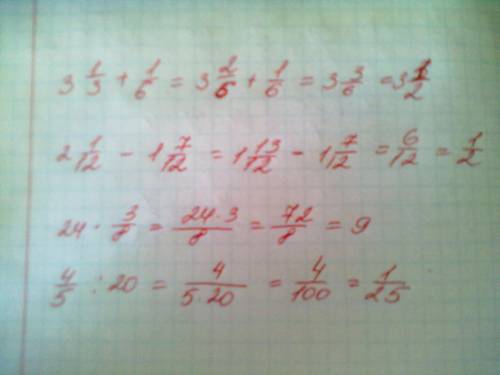 3 1/3 + 1/6 = 3 2/6 + 1/6 = 3 3/6 = 3 1/2
2 1/12 - 1 7/12 = 1 13/12 - 1 7/12 = 6/12 = 1/2
24 · 3/8 = 24·3/8 = 72/8 = 9
4/5 : 20 = 4/5·20 = 4/100 = 1/25